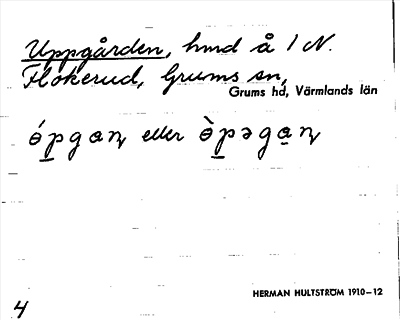 Uppgården, hmd å 1 N.
Flokerud, Grums sn,
Grums hd, Värmlands län
ɵ́pgaɳ eller ɵ̀pəgaɳ
HERMAN HULTSTRÖM 1910–12
4